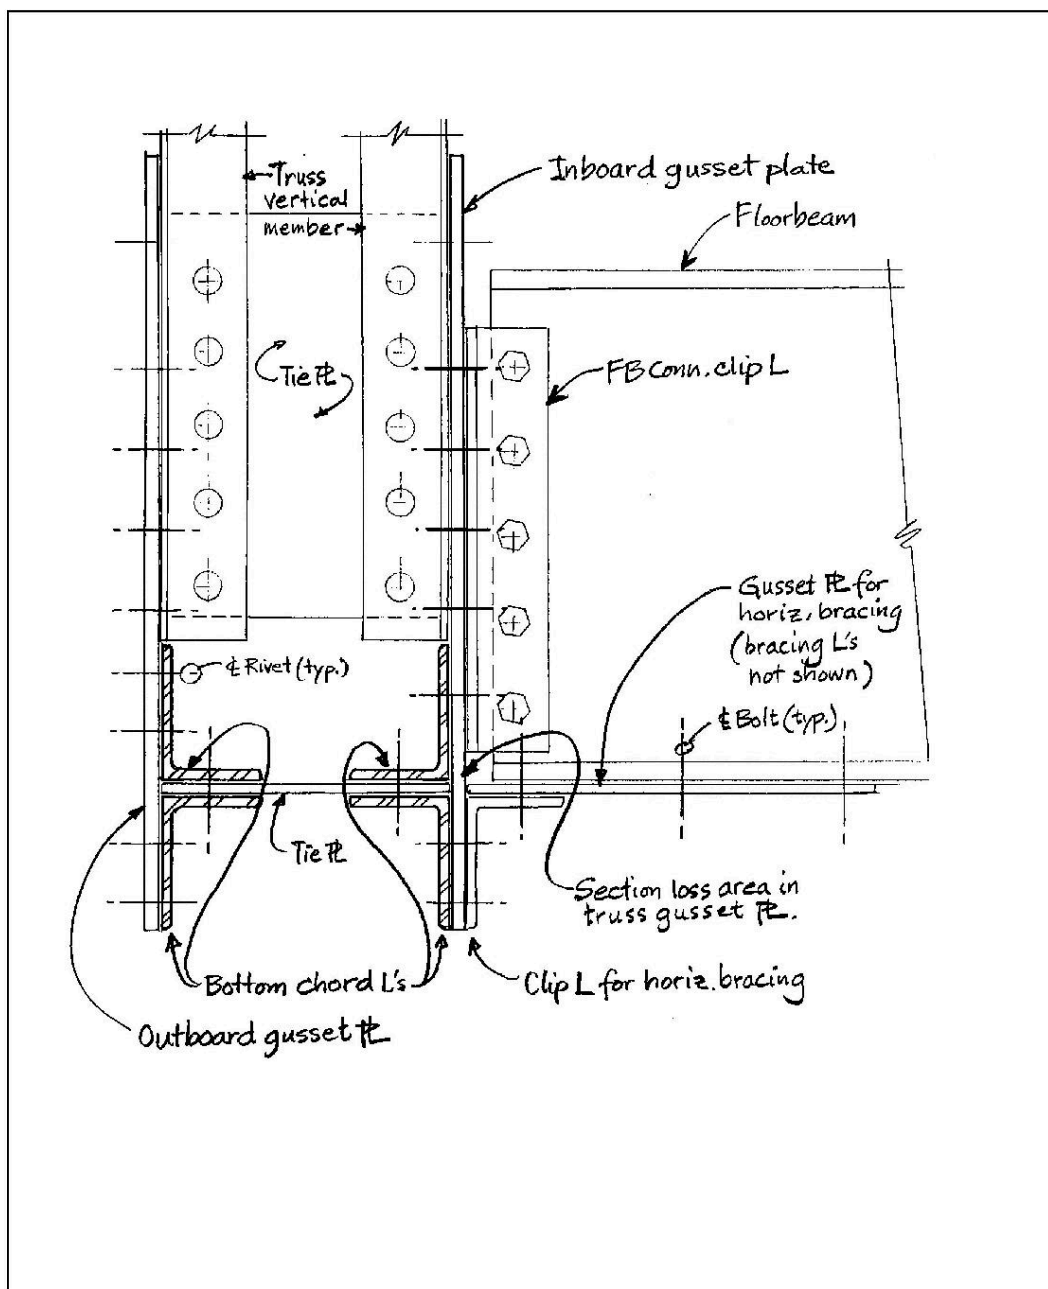 Truss
vertical
member
Inboard gusset plate
Floorbeam
Tie PL
FB Conn. clip L
Gusset PL for
horiz. bracing
(bracing L's
not shown)
℄ Rivet (typ.)
℄ Bolt (typ.)
Tie PL
Section loss area in
truss gusset PL.
Bottom chord L's
Clip L for horiz. bracing
Outboard gusset PL